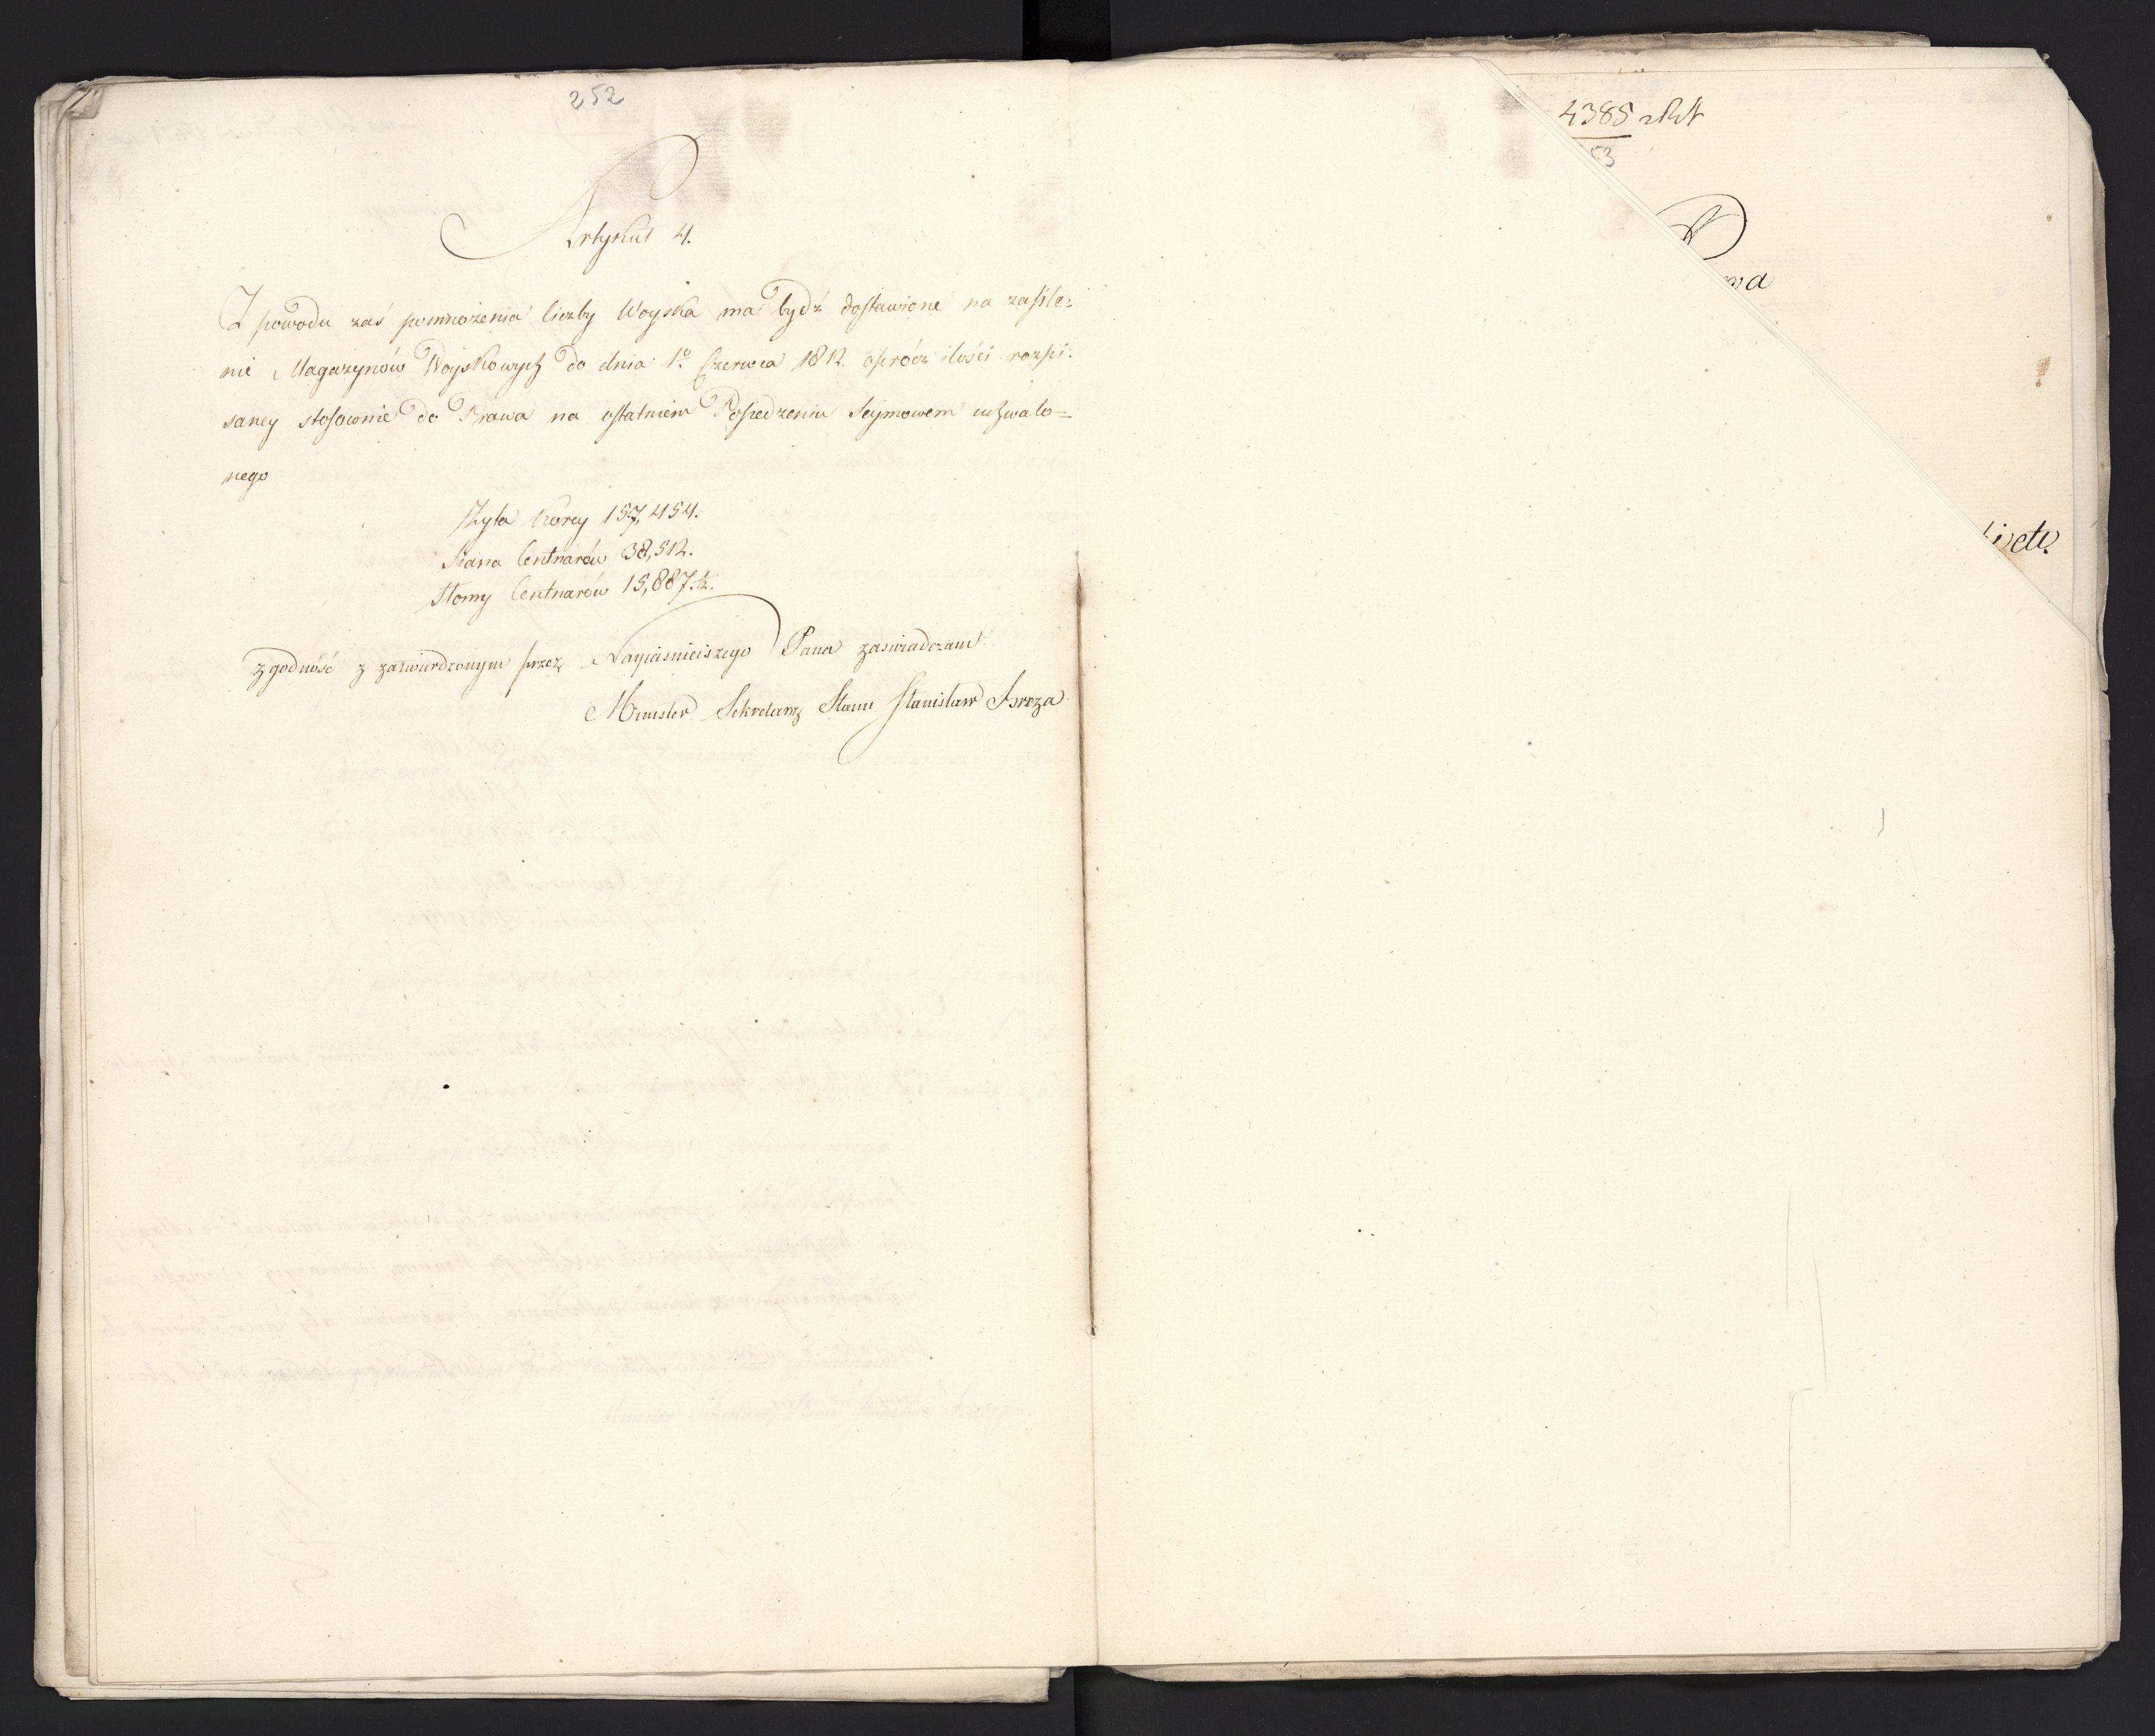 252
Artykuł 4.
Z powodu zaś pomnożenia liczby Woyska ma bydź dostawione na zasile-
nie Magazynów Woyskowych do dnia 1º Czerwca 1812 oprócz ilości rozpi-
saney stosownie do Prawa na ostatniem Posiedzeniu Seymowem uchwalo=
nego
Żyta korcy 157,454.
Siana Centnarów 38,512.
Słomy Centnarów 15,887.½.
Zgodność z zatwierdzonym przez Nayiaśnieiszego Pana zaświadczam
Minister Sekretarz Stanu Stanisław Breza
4385
53
wa